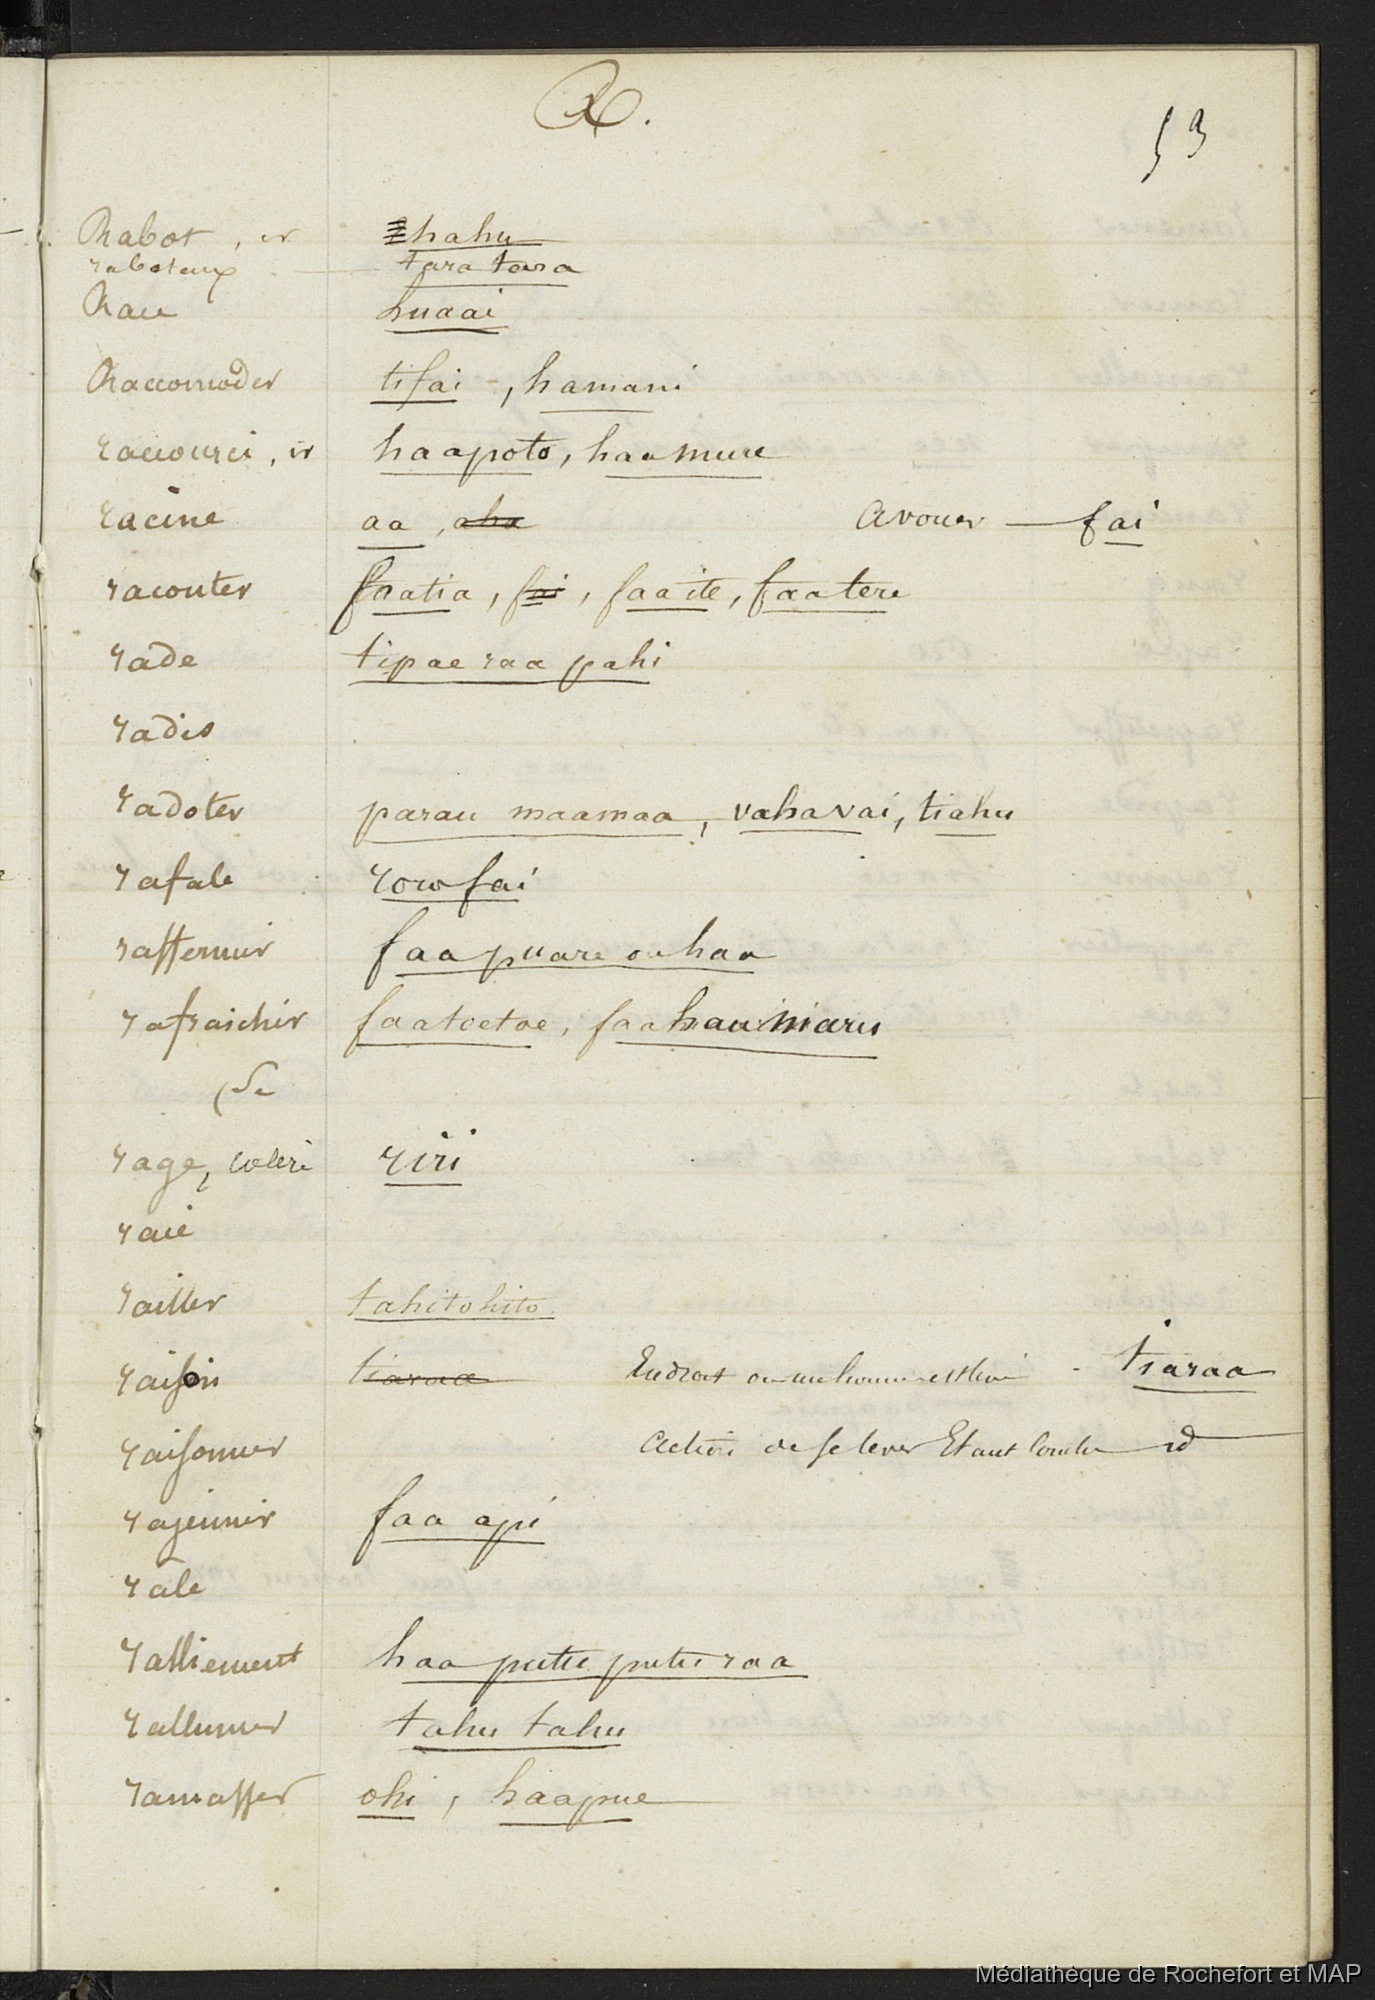 R.
53
Rabot, er hahu
raboteux taratara
Race huaai
Raccomoder tifai, hamani
raccourci, ir haapoto, haamure
racine aa, aha Avouer — fai
raconter faatia, fai, faaite, faatere
rade tipaeraa pahi
radis
radoter parau maamaa, vahavai, tiahu
rafale rorofai
raffermir faapuare ouhaa
rafraichir faatoetoe, faahauhiaru
(Se
rage, colère riri
raie
railler tahitohito.
raison tiaraa Endroit ou une homme est tiaraa
raisonner Action de se lever Etant Couché — id
rajeunir faa api
râle
ralliement haaputuputuraa
rallumer tahu tahu
ramasser ohi, haapue
Médiathèque de Rochefort et MAP